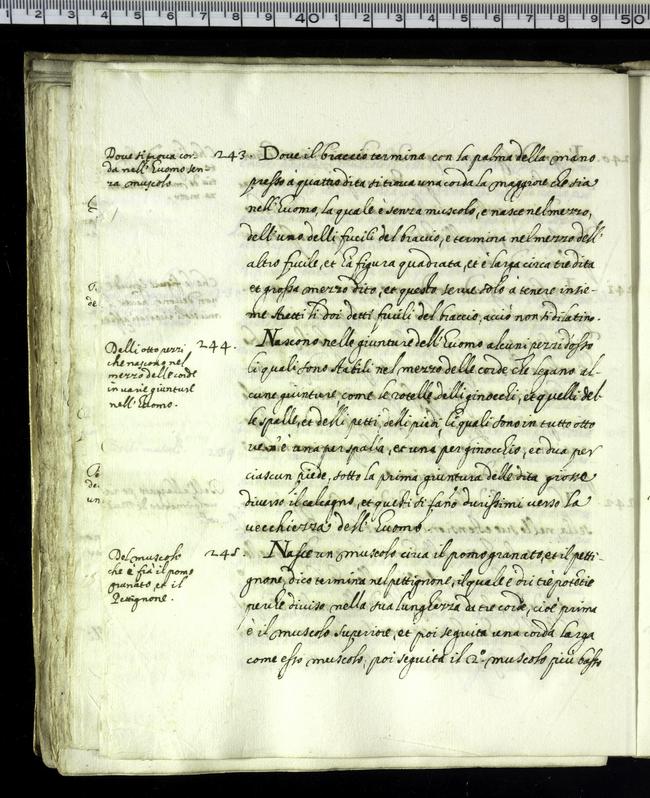 Dove si trova cor-
da nell'Huomo sen-
za muscolo.
243. Dove il braccio termina con la palma della mano
presso à quattro dita si trova una corda la maggiore che sia
nell'Huomo, la quale è senza muscolo, e nasce nel mezzo,
dell'uno delli fucili del braccio, e termina nel mezzo dell'
altro fucile, et hà figura quadrata, et è larga circa tre dita
et grossa mezzo dito, et questo serve solo a tenere insie-
me stretti li doi detti fucili del braccio, acciò non si dilatino.
Delli otto pezzi
che nascono nel
mezzo delle corde
in varie giunture
nell'Huomo.
244. Nascono nelle giunture dell'Huomo alcuni pezzi d'osso
li quali sono stabili nel mezzo delle corde che legano al-
cune giunture come le rotelle delli ginocchi, et quelli del-
le spalle, et delli petti, delli piedi, li quali sono in tutto otto
ve n'è una per spalla, et una per ginocchio, et dua per
ciascun piede, sotto la prima giuntura delle dita grosse
diverso il calcagno, et questi si fano durissimi verso la
vecchiezza dell'Huomo.
Del muscolo
che è frà il pomo
granato, et il
Pettignone.
245. Nasce un muscolo circa il pomo granato, et il petti-
gnone, dico termina nel pettignone, il quale è di tre potentie
perche diviso nella sua lunghezza da tre corde, cioè prima
è il muscolo superiore, et poi seguita una corda larga
come esso muscolo, poi seguita il 2.º muscolo più basso